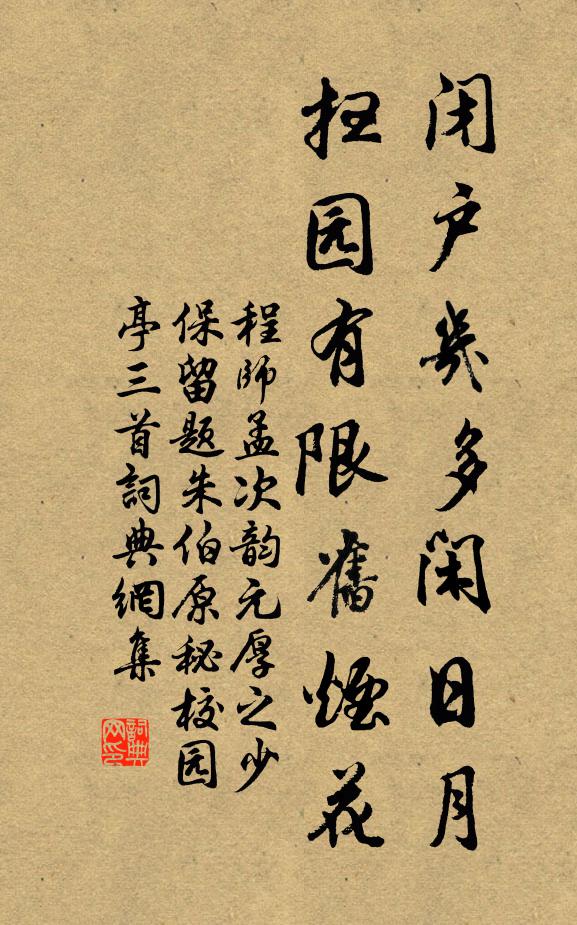 闭户幾多闲日月
园有限舊煙花
程師孟次韵元厚之少
保留题朱伯原秘校园
亭三首詞典網集
詞典网印